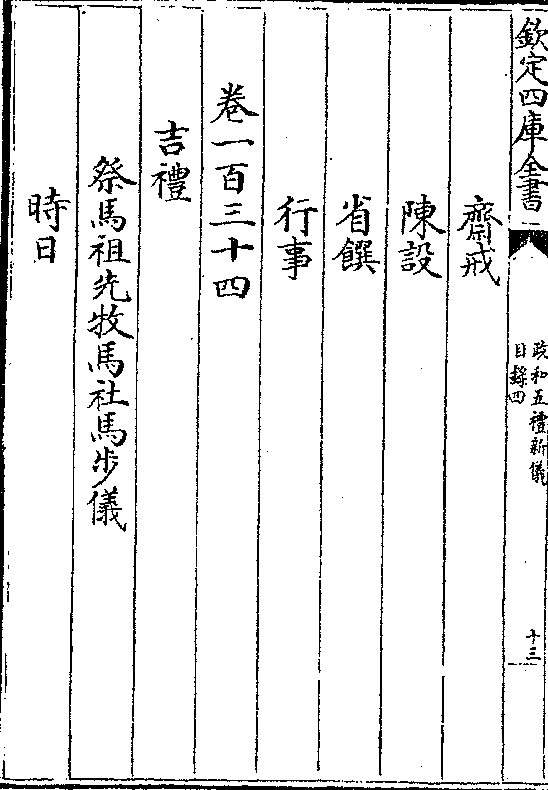 欽定四庫全書
政和五禮新儀
目錄四
十三
齋戒
陳設
省饌
行事
卷一百三十四
吉禮
祭馬祖先牧馬社馬步儀
時日